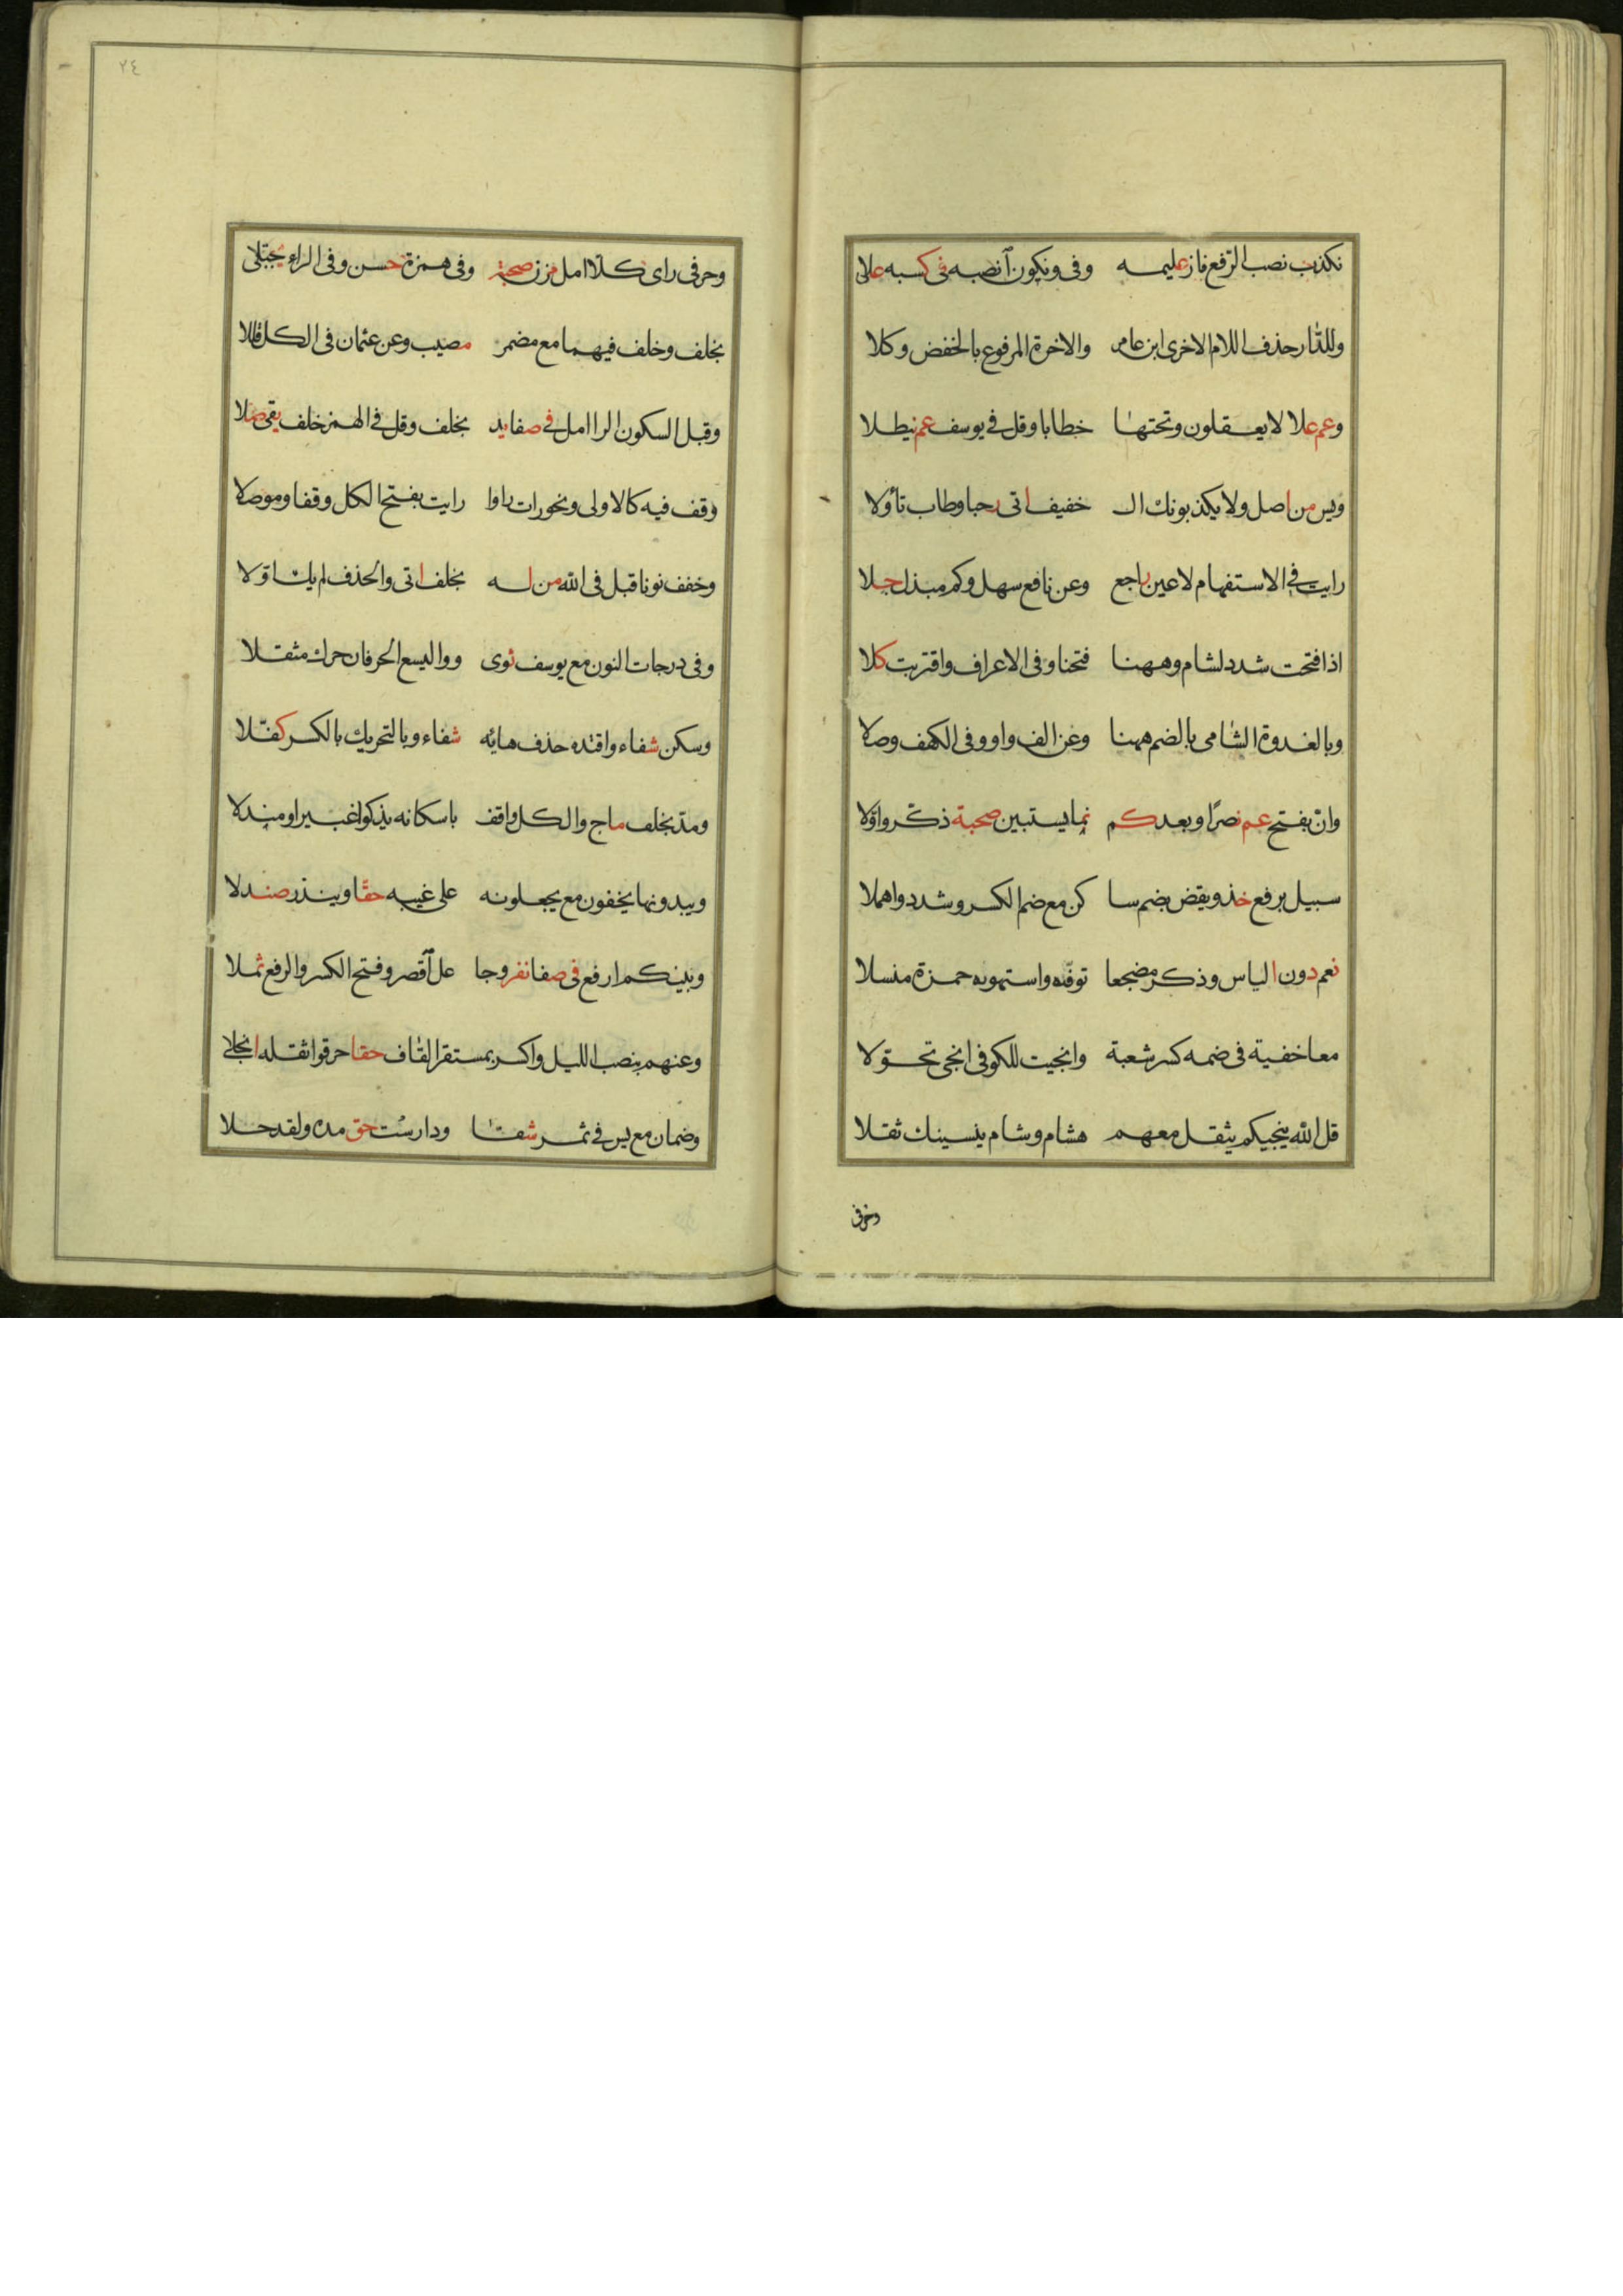 نكذب نصب الرفع فاز عليمه وفى ونكون أنصبه فى كسبه علا
وللدار حذف اللام الاخرى ابن عامر والاخرة المرفوع بالخفض وكلا
وعم علا لا يعقلون وتحتها خطابا وقل فى يوسف عم نيطلا
ويس من اصل ولا يكذبونك ال خفيف اتى رحبا وطاب تأولا
رايت فى الاستفهام لا عين راجع وعن نافع سهل وكم مبدل جلا
اذا فتحت شدد لشام وههنا فتحنا وفى الاعراف واقتربت كلا
وبالغدوة الشامى بالضم ههنا وعن الف واو وفى الكهف وصلا
وان بفتح عم نصرا وبعدكم نما يستبين صحبة ذكروا ولا
سبيل برفع خذ ويقض بضم سا كن مع ضم الكسر وشدد واهملا
نعم دون الباس وذكر مضجعا توفته واستهويه حمزة منسلا
معا خفية فى ضمه كسر شعبة وانجيت للكوفى انجى تحولا
قل الله ينجيكم يثقل معهم هشام وشام ينسينك ثقلا
وحرفى
٢٤
وحرفى راى كلا امل مزن صحبة وفى همزة حسن وفى الراء يجتلى
بخلف وخلف فيهما مع مضمر مصيب وعن عثمان فى الكل قللا
وقبل السكون الرا امل فى صفا يد بخلف وقل فى الهمز خلف يقى صلا
وقف فيه كالاولى ونحو رات راوا رايت بفتح الكل وقفا وموصلا
وخفف نونا قبل فى الله من له بخلف اتى والحذف لم يك اولا
وفى درجات النون مع يوسف ثوى ووا ليسع الحرفان حرك مثقلا
وسكن شفاء واقتده حذف هايه شفاء وبالتحريك بالكسر كفلا
ومد بخلف ماج والكل واقف باسكانه يذكوا عبيرا ومندلا
ويبدونها يخفون مع يجعلونه على غيبه حقا وينذر صندلا
وبينكم ارفع فى صفا نفر وجا عل أقصر وفتح الكسر والرفع ثملا
وعنهم بنصب الليل واكسر بمستقر القاف حقا خرقوا ثقله انجلى
وضمان مع يس فى ثمر شفا ودارست حق مده ولقد حلا